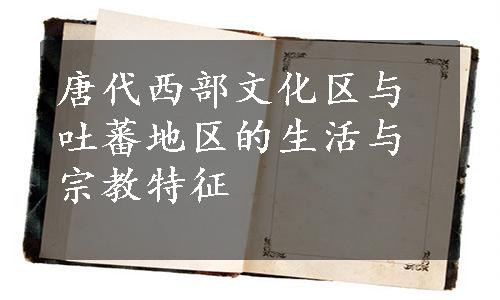 唐代西部文化区与
吐蕃地区的生活与
宗教特征